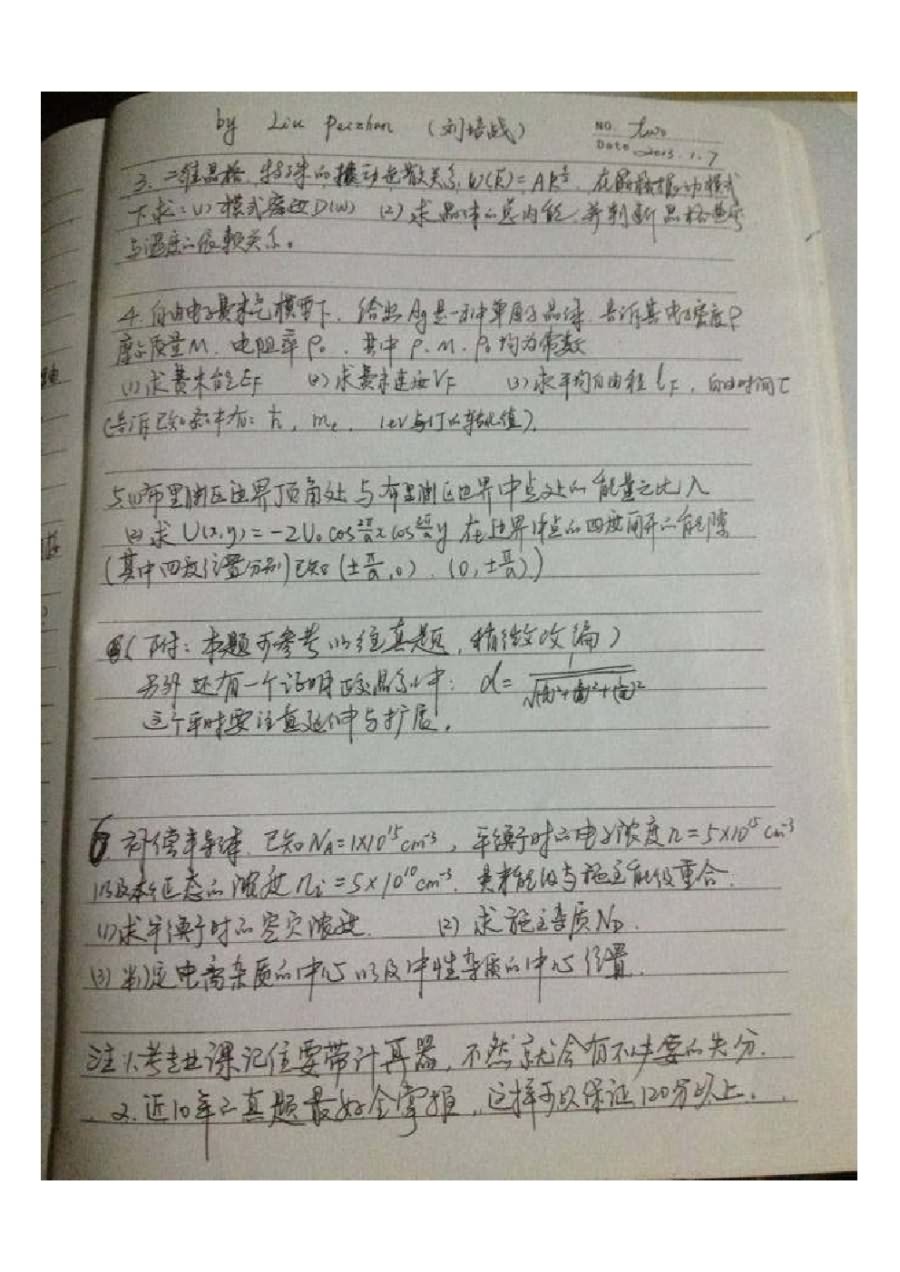 by Liu Peizhan (刘培战)
NO. two
Date 2013.1.7
3. 二维晶格,特殊的振动色散关系,W(K)=AK^{3/2}, 在晶格振动模式
下求:(1)模式密度D(W) (2)求晶体的总内能,并判断晶格
与温度的依赖关系。
4. 自由电子费米气模型下, 给出Ag是一种单原子晶体, 告诉其电子密度ρ
摩尔质量M, 电阻率ρ₀, 其中ρ、M、ρ₀均为常数
(1)求费米能E_F (2)求费米速度V_F (3)求平均自由程l_F, 自由时间τ
(告诉已知条件有: ħ, m_e, 1eV与1J的转化值).
5.(1)布里渊区边界顶角处与布里渊区边界中点处的能量之比入
(2)求U(x,y)=-2U₀cos\frac{2π}{a}x cos\frac{2π}{a}y 在边界中点的四度间开的能隙
(其中四度位置分别已知(±\frac{π}{a},0), (0,±\frac{π}{a}))
(下附: 本题可参考以往真题, 稍微改编)
另外还有一个证明正交晶系中: d=\frac{1}{\sqrt{(\frac{h}{a})²+(\frac{k}{b})²+(\frac{l}{c})²}}
这个平时要注意延伸与扩展。
6. 补偿半导体, 已知N_A=1×10^{15}cm^{-3}, 平衡时的电子浓度n=5×10^{15}cm^{-3}
以及本征态的浓度n_i=5×10^{10}cm^{-3}. 费米能级与施主能级重合.
(1)求平衡时的空穴浓度. (2) 求施主杂质N_D.
(3) 判定电离杂质的中心以及中性杂质的中心位置.
注1.考专业课记住要带计算器, 不然就会有不必要的失分.
2.近10年的真题最好全掌握, 这样可以保证120分以上.